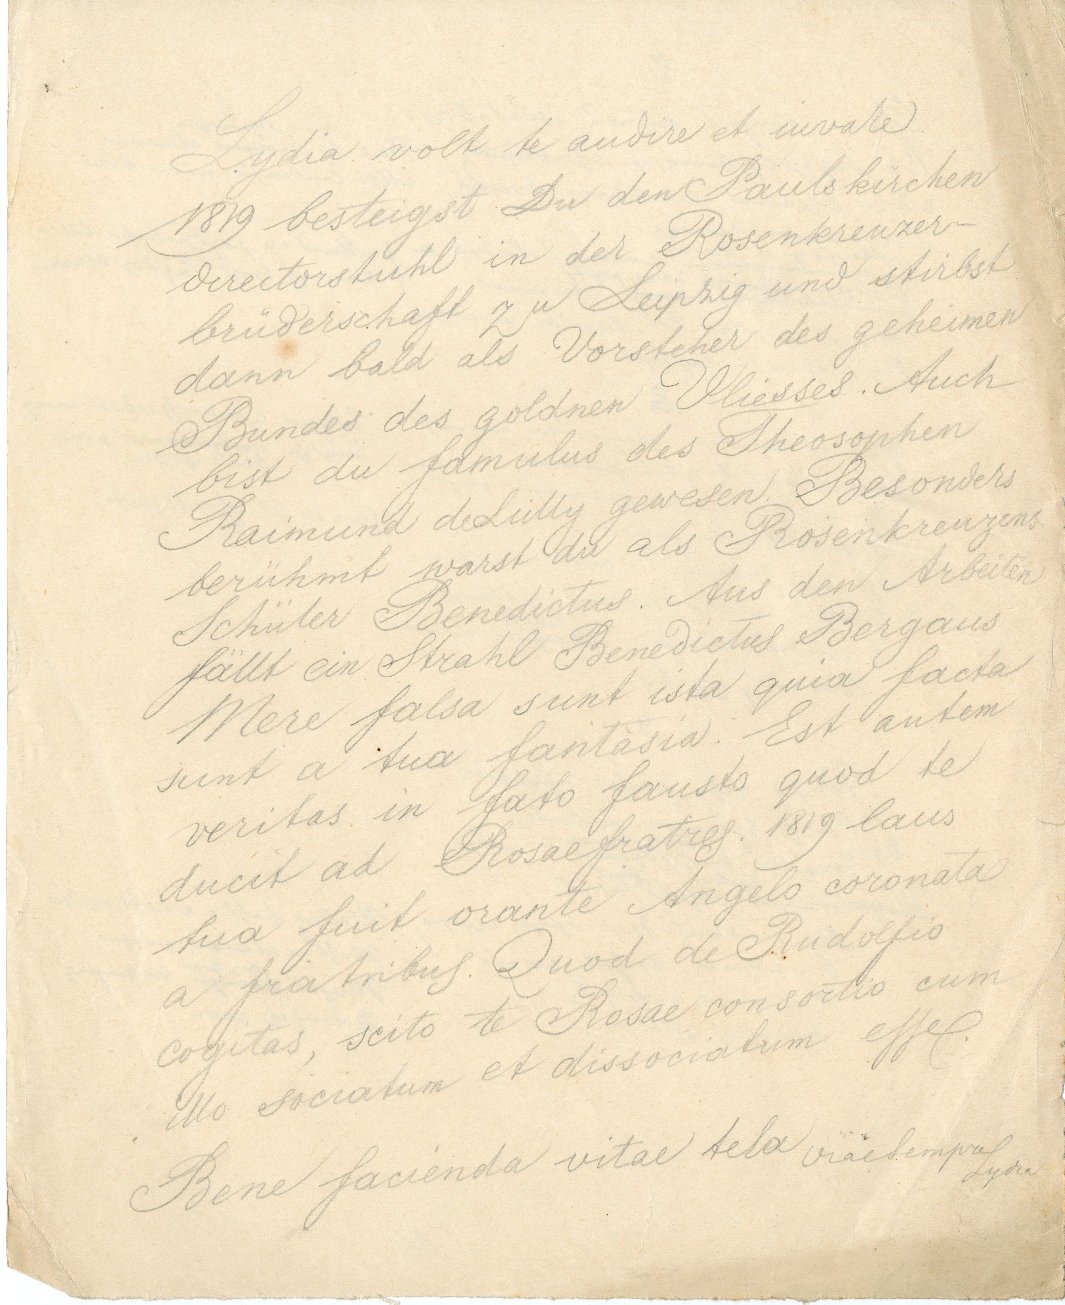 Lydia volt te audire et iuvare
1819 besteigst Du den Paulskirchen
directorstuhl in der Rosenkreuzer-
brüderschaft zu Leipzig und stirbst
dann bald als Vorsteher des geheimen
Bundes des goldnen Vliesses. Auch
bist du famulus des Theosophen
Raimund de Lully gewesen. Besonders
berühmt warst du als Rosenkreuzens
Schüler Benedictus. Aus den Arbeiten
fällt ein Strahl Benedictus Bergaus
Mere falsa sunt ista quia facta
sunt a tua fantasia. Est autem
veritas in fato fausto quod te
ducit ad Rosae fratres. 1819 laus
tua fuit orante Angelo coronata
a fratribus. Quod de Rudolfio
cogitas, scito te Rosae consortio cum
illo sociatum et dissociatum esse.
Bene facienda vitae tela
Lydia